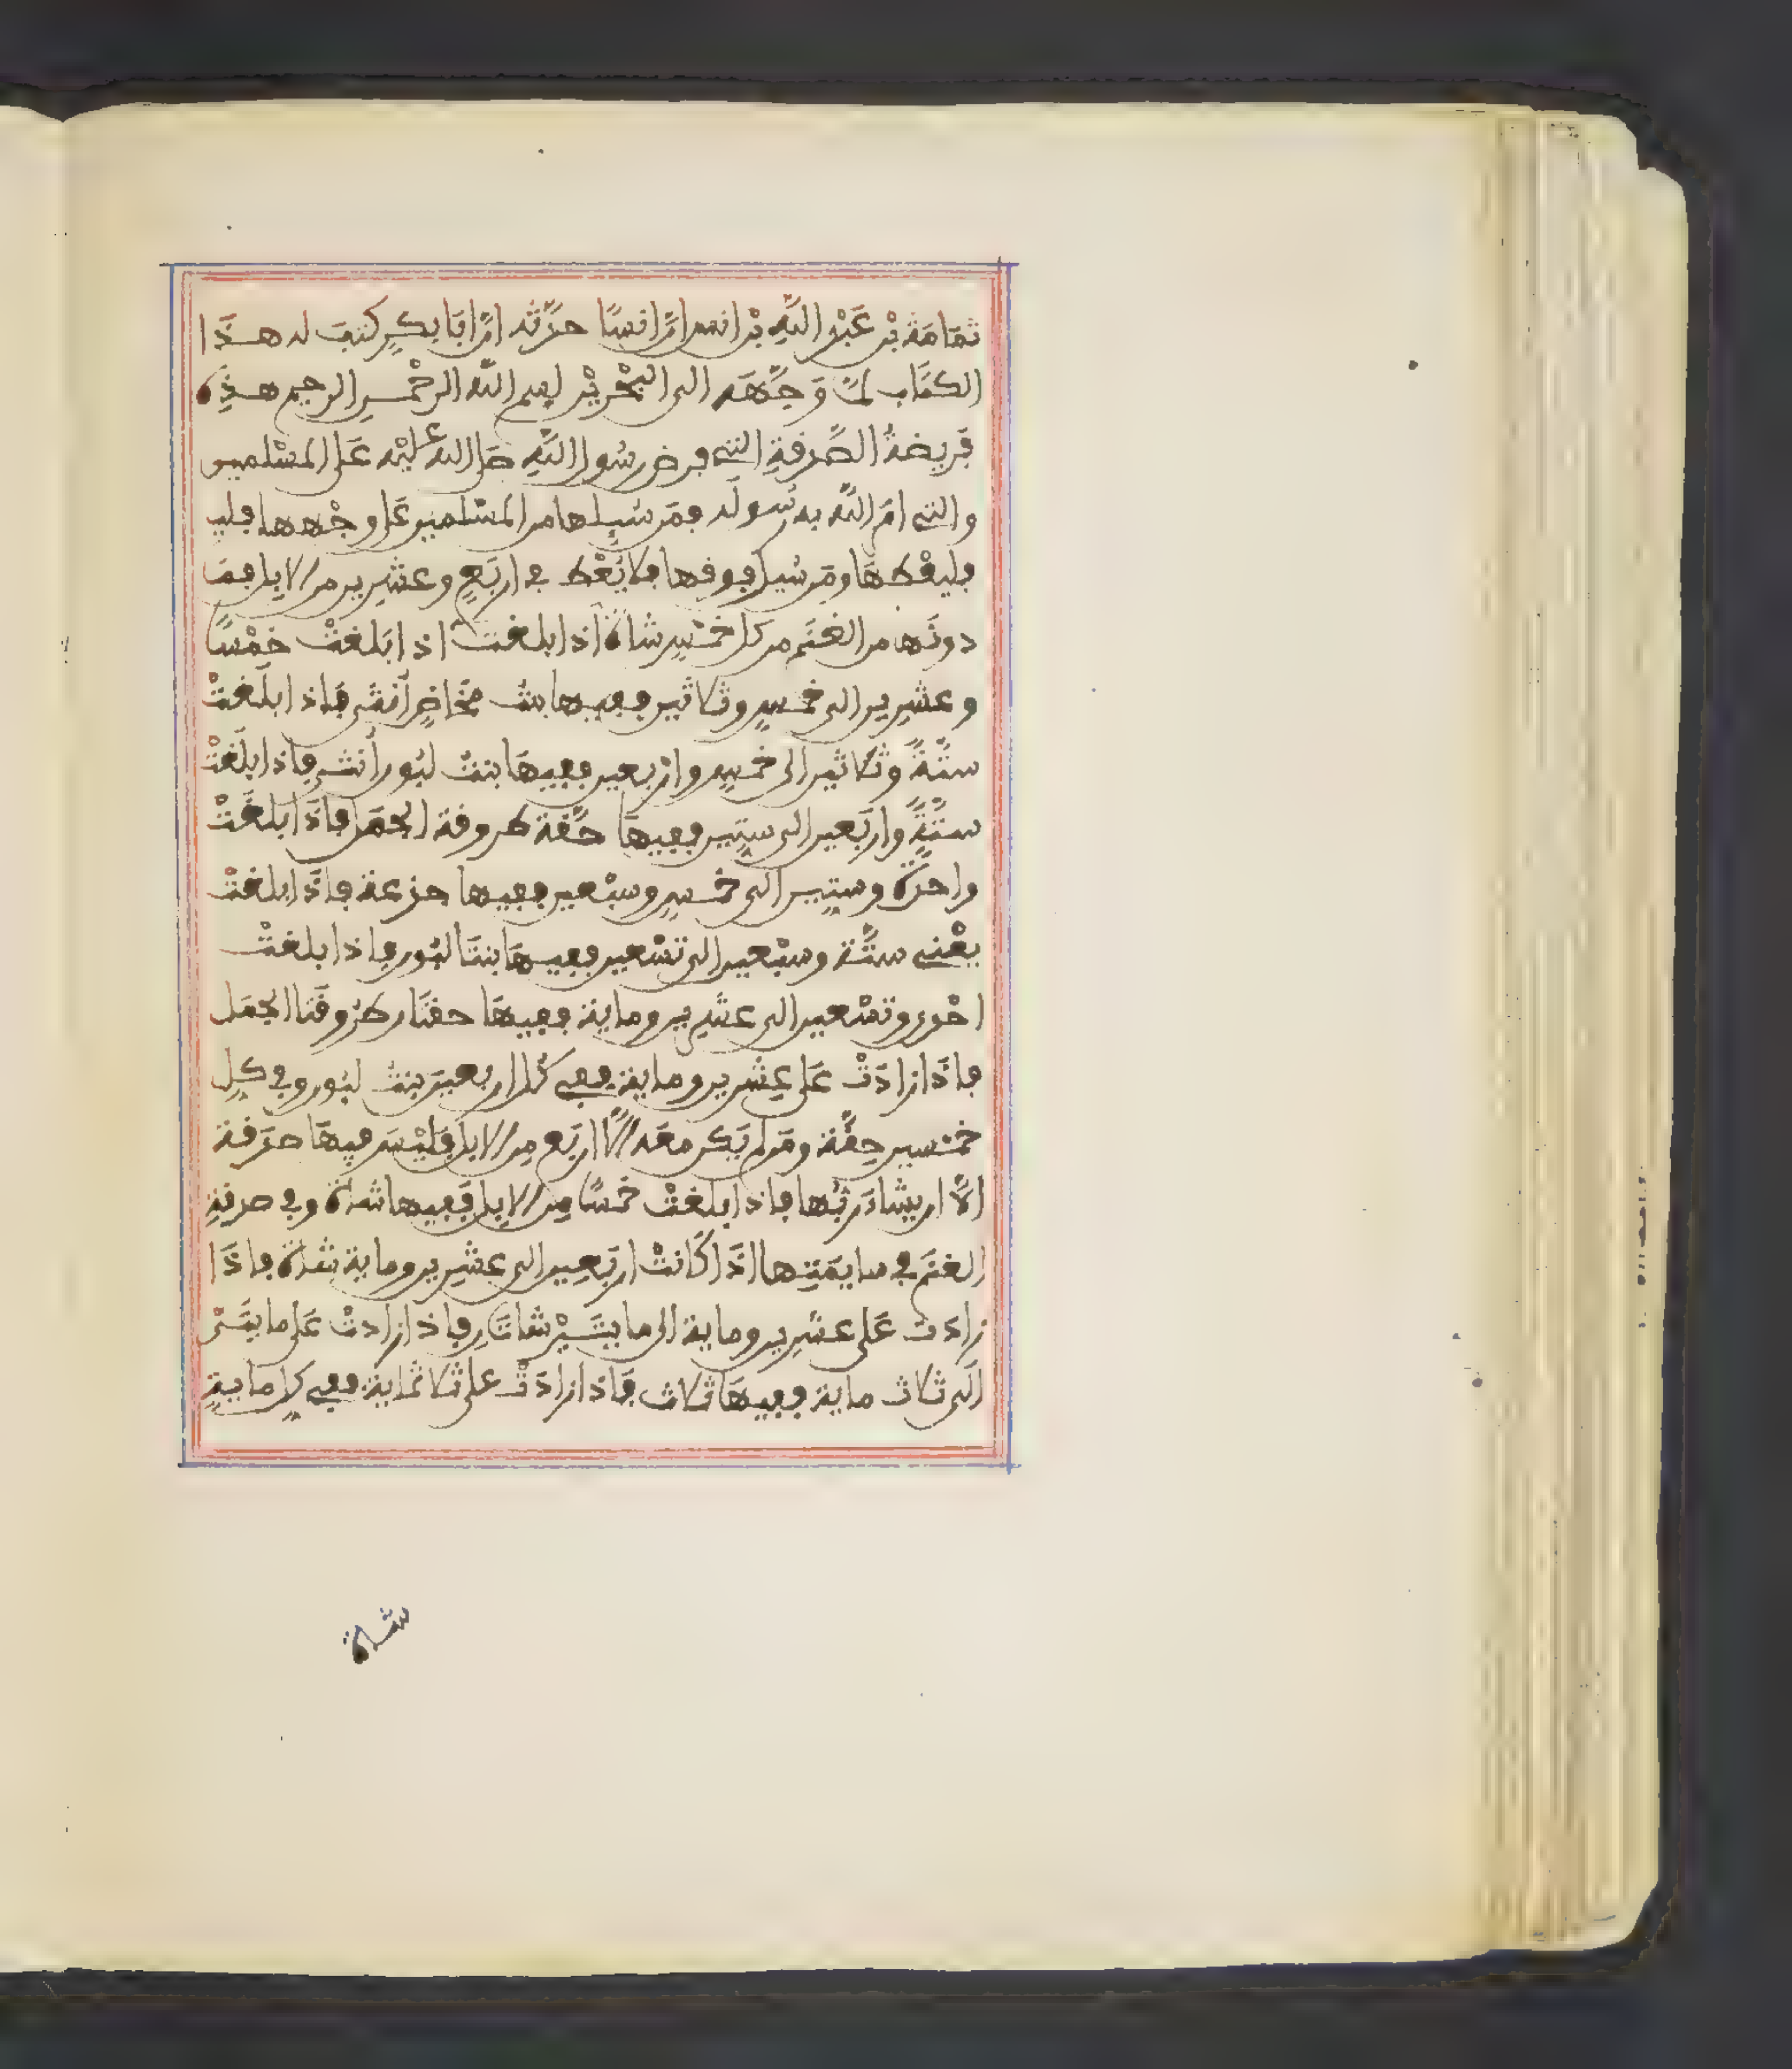 ثمامة بن عبد الله بن انس ان انسا حدثه ان ابا بكر كتب له هذا
الكتاب لما وجهه الى البحرين بسم الله الرحمن الرحيم هذه
فريضة الصدقة التي فرض رسول الله صلى الله عليه على المسلمين
والتي امر الله به رسوله فمن سيلها من المسلمين على وجهها فليـ
فليعطها ومن سيل فوقها فلا يعط في اربع وعشرين من الابل فما
دونها من الغنم من كل خمس شاة اذا بلغت اذا بلغت خمسا
وعشرين الى خمس وثلاثين ففيها بنت مخاض أنثى فإذا بلغت
ستة وثلاثين الى خمس واربعين ففيها بنت لبون أنثى فإذا بلغت
ستة واربعين الى ستين ففيها حقة طروقة الجمل فاذا بلغت
واحدة وستين الى خمس وسبعين ففيها جذعة فاذا بلغت
يعني ستة وسبعين الى تسعين ففيها بنتا لبون فاذا بلغت
احدى وتسعين الى عشرين وماية ففيها حقتان طروقتا الجمل
فاذا زادت على عشرين وماية ففي كل اربعين بنت لبون وفي كل
خمسين حقة ومن لم يكن معه الا اربع من الابل فليس فيها صدقة
الا ان يشاء ربها فاذا بلغت خمسا من الابل ففيها شاة وفي صدقة
الغنم في سايمتها اذا كانت اربعين الى عشرين وماية شاة فاذا
زادت على عشرين وماية الى مايتين شاتان فاذا زادت على مايتين
الى ثلاث ماية ففيها ثلاث فاذا زادت على ثلاثماية ففي كل ماية
شاة